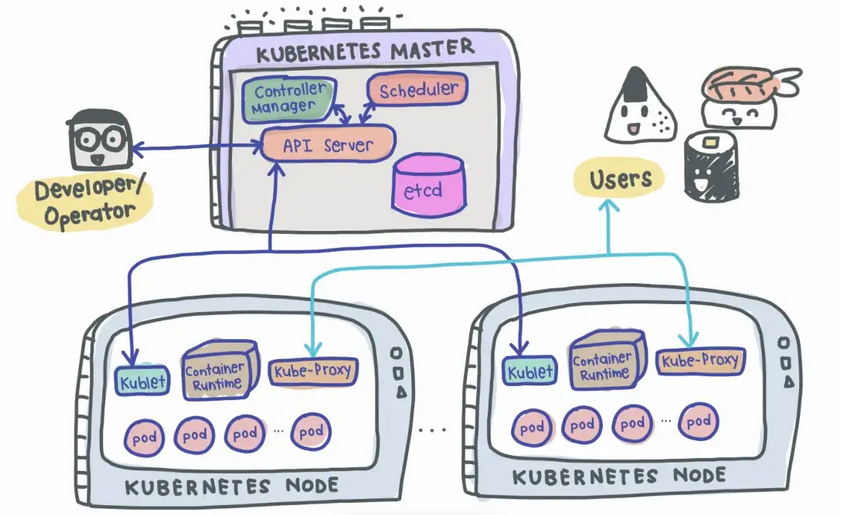 KUBERNETES MASTER
Controller
Manager
Scheduler
API Server
etcd
Developer/
Operator
Users
Kublet
Container
Runtime
Kube-Proxy
pod
pod
pod
...
pod
KUBERNETES NODE
...
Kublet
Container
Runtime
Kube-Proxy
pod
pod
pod
...
pod
KUBERNETES NODE